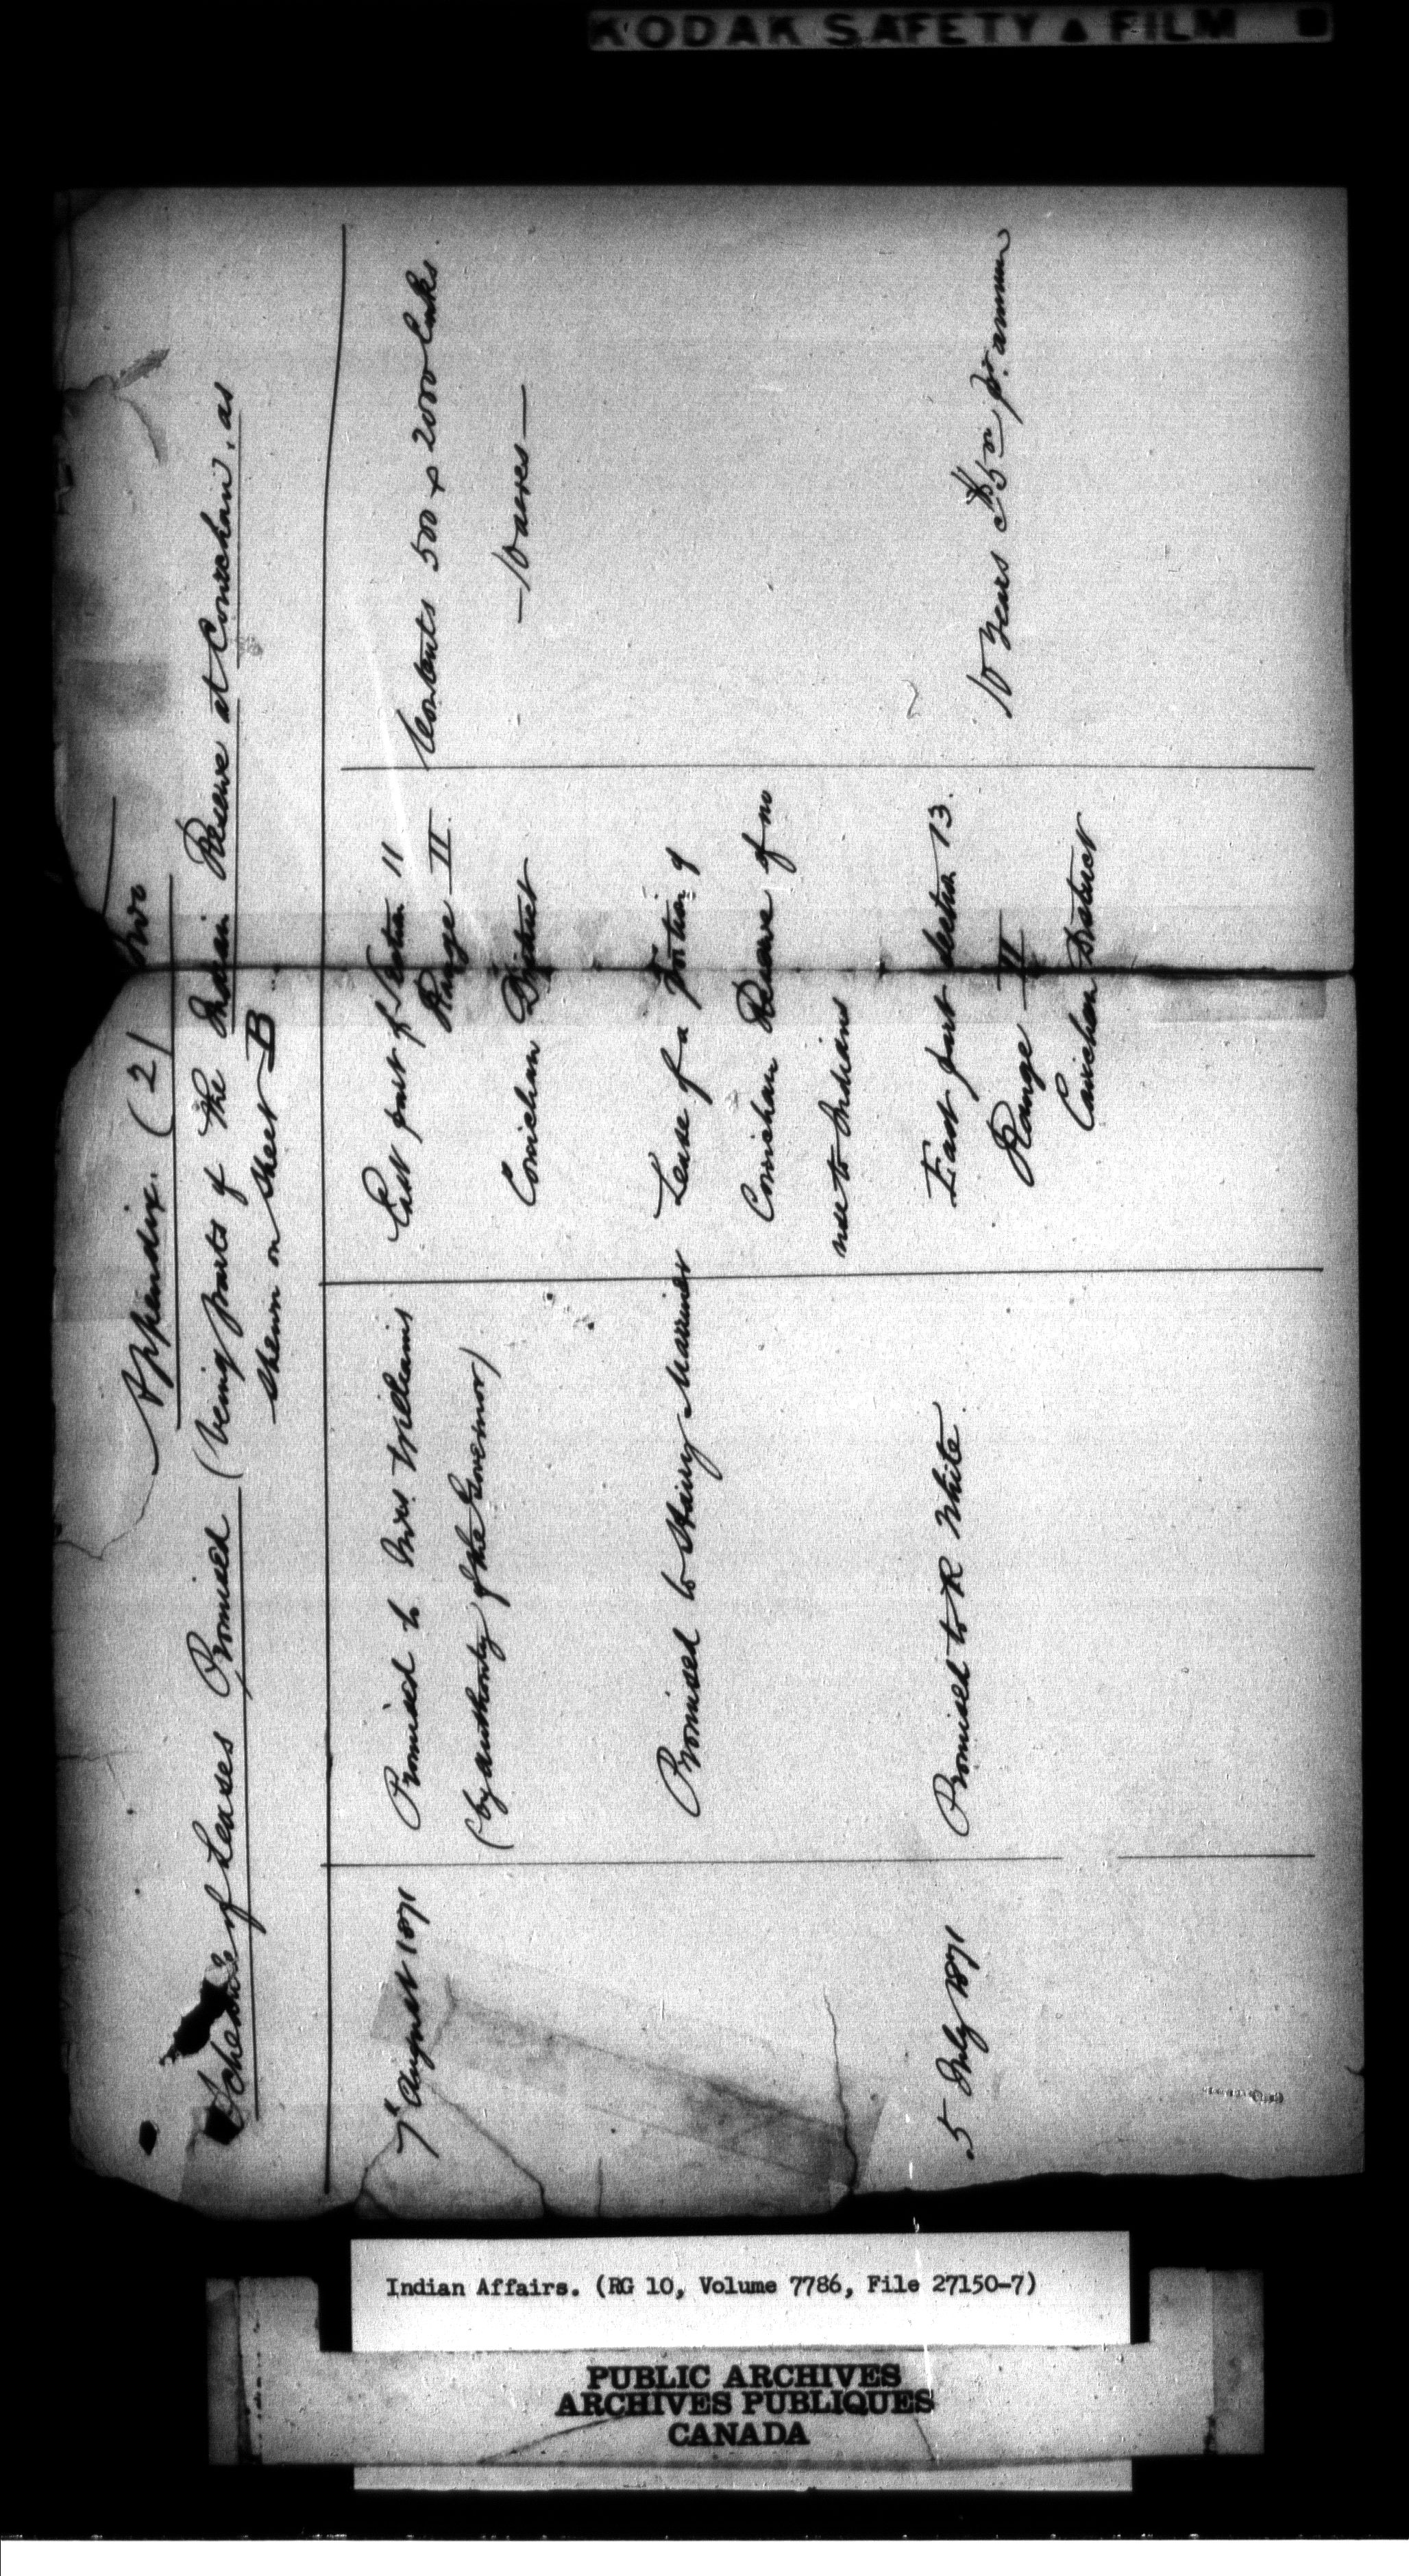 KODAK SAFETY ▲ FILM
Appendix. (2) Two
Schedule of Leases Promised (being parts of the Indian Reserve at Cowichan, as
shewn on Sheet B
7" August 1871
Promised to Mrs Williams
(by authority of the Governor)
East part of Section 11
Range II.
Cowichan District
Contents 500 x 2000 links.
—10 acres—
Promised to Harry Marriner
Lease of a Portion of
Cowichan Reserve of no
use to Indians
5 July 1871
Promised to R White
East part Section 13.
Range II
Cowichan District
10 Years $5 pr. annum
Indian Affairs. (RG 10, Volume 7786, File 27150-7)
PUBLIC ARCHIVES
ARCHIVES PUBLIQUES
CANADA